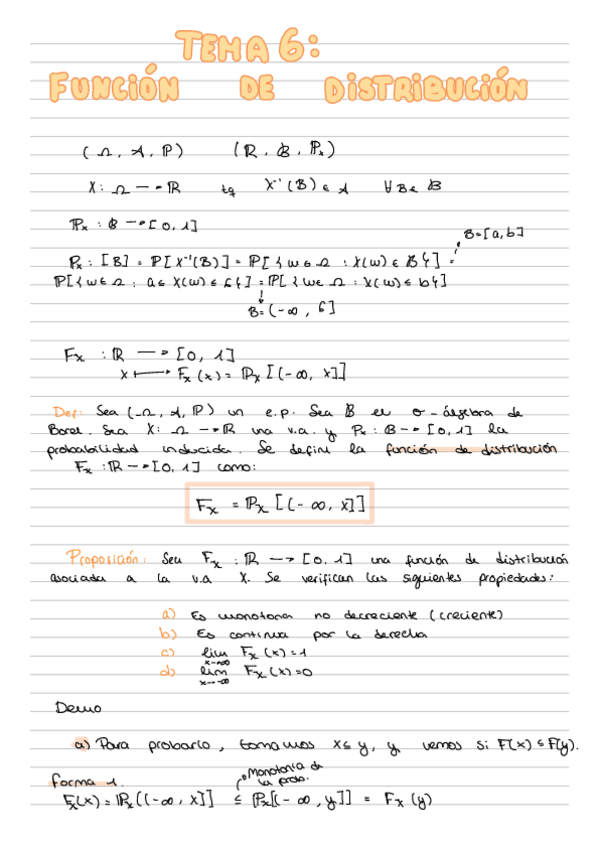 TEMA 6:
FUNCIÓN DE DISTRIBUCIÓN
(Ω, A, P) (R, B, Pₓ)
X: Ω → R tq X⁻¹(B) ∈ A ∀B∈ B
Pₓ : B → [0, 1]
B=[a,b]
Pₓ : [B] = P[X⁻¹(B)] = P[{ω∈Ω : X(ω) ∈ B}] =
P[{ω∈Ω : a≤X(ω)≤b}] = P[{ω∈Ω : X(ω)≤b}]
B=(-∞, b]
Fₓ : R → [0, 1]
x ↦ Fₓ(x) = Pₓ[(-∞, x]]
Def: Sea (Ω, A, P) un e.p. Sea B el σ-álgebra de
Borel. Sea X: Ω → R una v.a. y Pₓ: B → [0, 1] la
probabilidad inducida. Se define la función de distribución
Fₓ : R → [0, 1] como:
Fₓ = Pₓ [(-∞, x]]
Proposición: Sea Fₓ : R → [0, 1] una función de distribución
asociada a la v.a X. Se verifican las siguientes propiedades:
a) Es monotona no decreciente (creciente)
b) Es continua por la derecha
c) lim Fₓ(x)=1
x→∞
d) lim Fₓ(x)=0
x→-∞
Demo
a) Para probarlo, tomamos x≤y, y vemos si F(x)≤F(y).
Forma 1.
Monotonía de
la proba.
Fₓ(x) = Pₓ[(-∞, x]] ≤ Pₓ[(-∞, y]] = Fₓ(y)